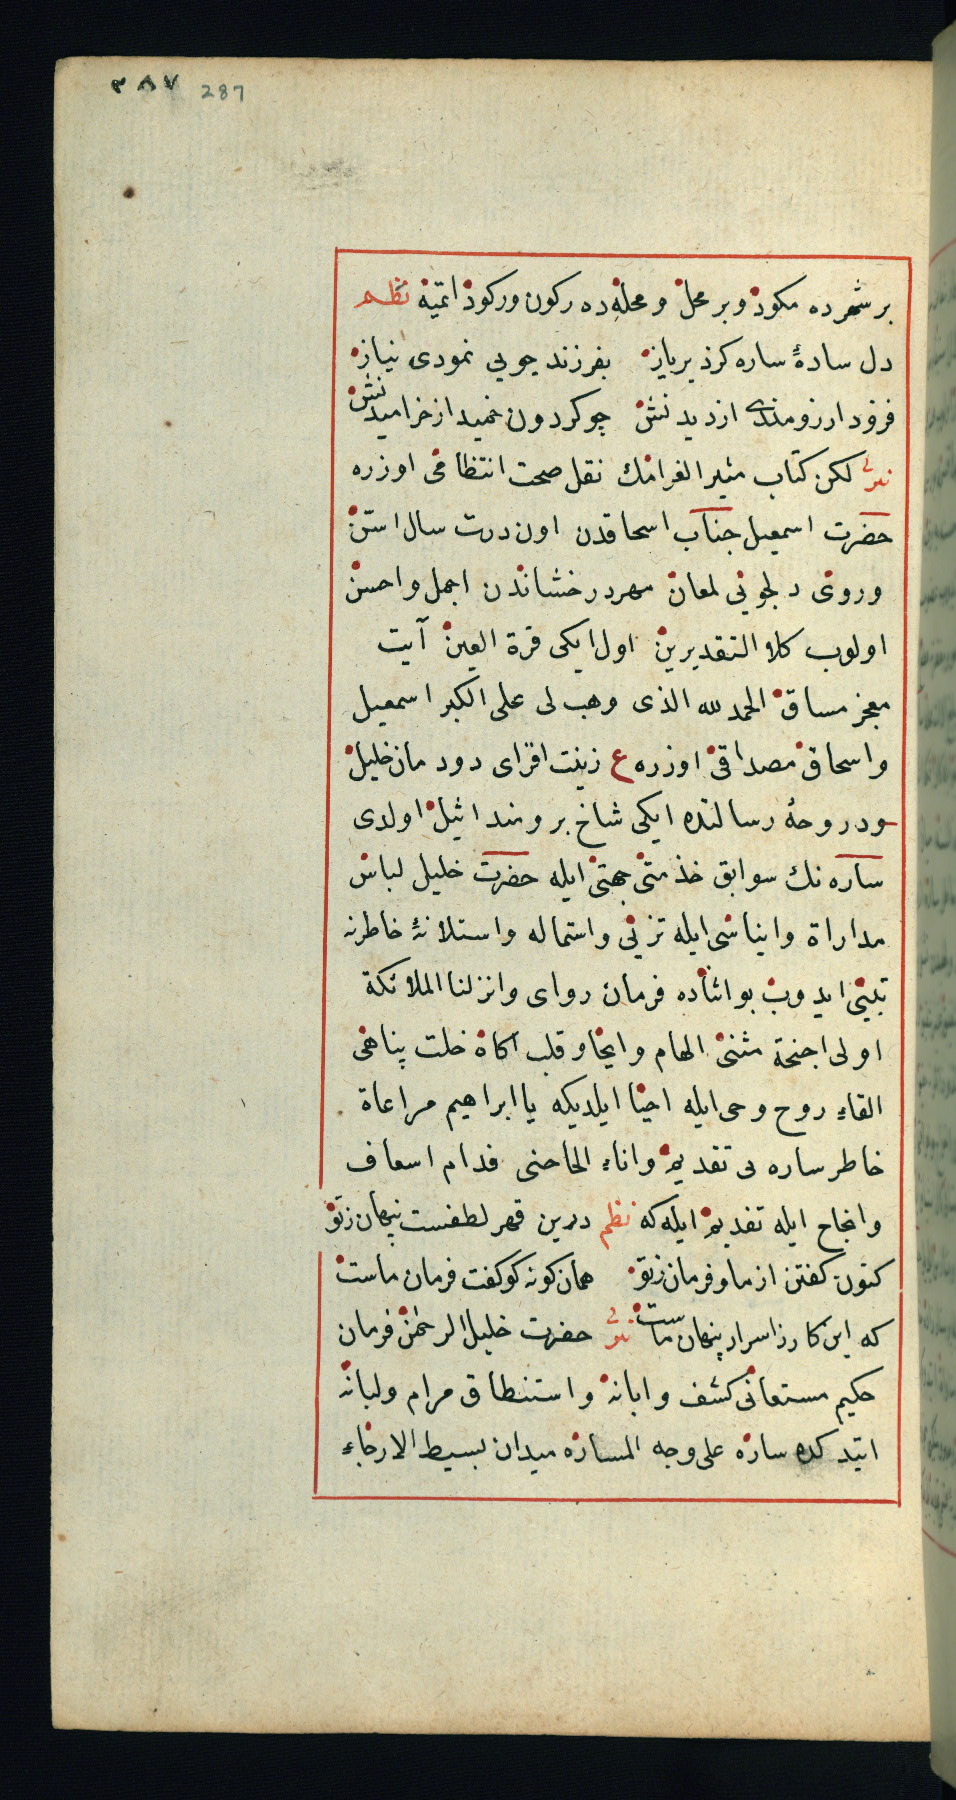 ٣٨٧ 287
بر شهرده مكوث و بر محل و محلهده ركون و ركود اتميه نظم
دل سادهٔ ساره كرد پرياز بفرزند جويى نمودى نياز
فزود ارزومندى از ديدنش چو كردون خميد از خراميدنش
نثر لكن كتاب مثير الغرامك نقل صحت انتظامى اوزره
حضرت اسمعيل جناب اسحاقدن اون درت سال استن
وروى دلجوئى لمعان مهر درخشاندن اجمل واحسن
اولوب كلا التقديرين اول ايكى قرة العين آيت
معجز مساق الحمد لله الذى وهب لى على الكبر اسمعيل
واسحاق مصداقى اوزره ع زينت افزاى دودمان خليل
ودر وحهٔ رسالتده ايكى شاخ برومند اثيل اولدى
ساره نك سوابق خدمتى جهتى ايله حضرت خليل لباس
مداراة وايناسى ايله تزيى واستماله واستلانهٔ خاطرنه
تبيتى ايدوب بو اثناده فرمان رواى وانزلنا الملائكة
اولى اجنحة مثنى الهام وايحا و قلب اكاه خلت پناهى
القاء روح وحى ايله احيا ايلديكه يا ابراهيم مراعاة
خاطر ساره يى تقديم واناء الحاحنى فدام اسعاف
وانجاح ايله تفديم ايله كه نظم درين قهر لطفست پنهان زتو
كنون كفتن از ما و فرمان زتو همان كونه كو كفت فرمان ماست
كه اين كار ز اسرار پنهان ماست نثر حضرت خليل الرحمن فرمان
حكيم مستعانى كشف وابانه واستنطاق مرام ولبانه
اتيدكده ساره على وجه المساره ميدان بسيط الارجاء